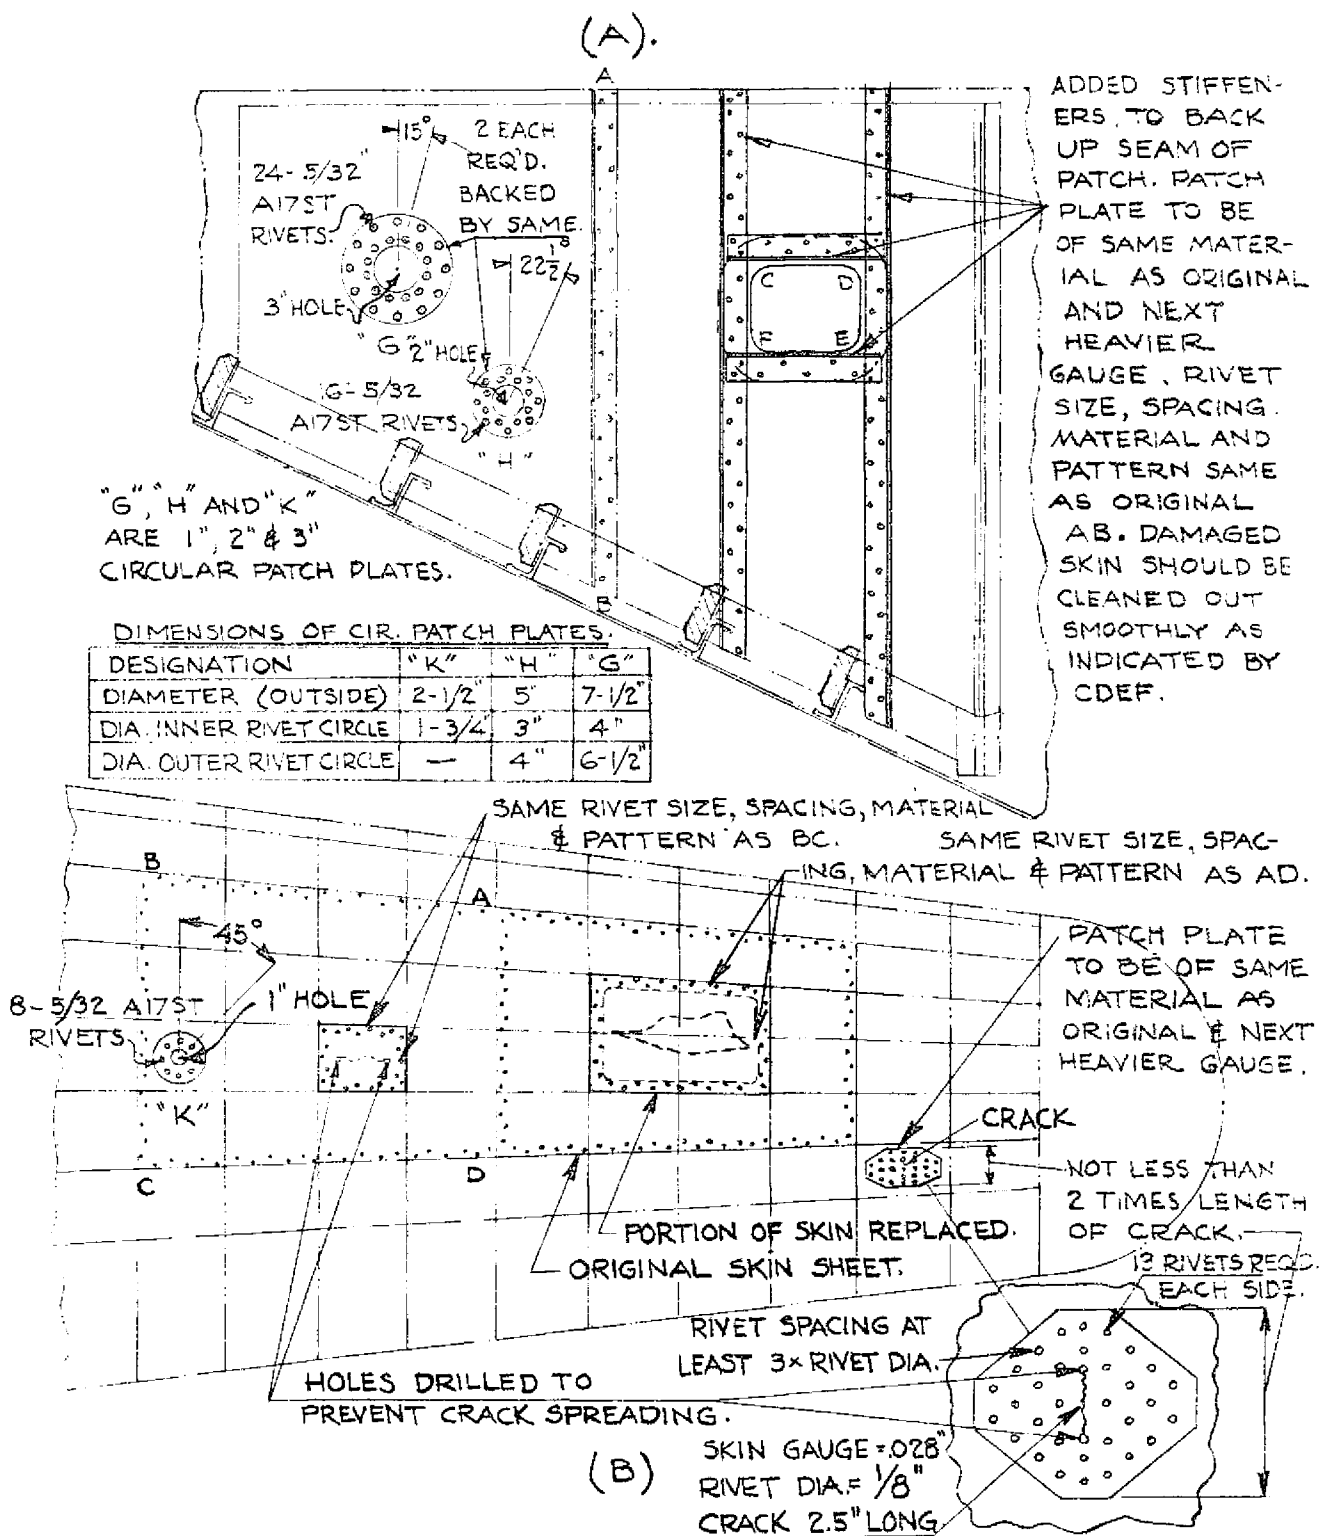 (A).
A
15°
2 EACH
REQ'D.
BACKED
BY SAME.
24-5/32"
A17ST
RIVETS.
22 1/2°
3" HOLE
"G"
2" HOLE
16-5/32
A17ST RIVETS
"H"
C D
F E
B
ADDED STIFFEN-
ERS. TO BACK
UP SEAM OF
PATCH. PATCH
PLATE TO BE
OF SAME MATER-
IAL AS ORIGINAL
AND NEXT
HEAVIER
GAUGE. RIVET
SIZE, SPACING.
MATERIAL AND
PATTERN SAME
AS ORIGINAL
AB. DAMAGED
SKIN SHOULD BE
CLEANED OUT
SMOOTHLY AS
INDICATED BY
CDEF.
"G", "H" AND "K"
ARE 1", 2" & 3"
CIRCULAR PATCH PLATES.
DIMENSIONS OF CIR. PATCH PLATES.
DESIGNATION "K" "H" "G"
DIAMETER (OUTSIDE) 2-1/2" 5" 7-1/2"
DIA. INNER RIVET CIRCLE 1-3/4" 3" 4"
DIA. OUTER RIVET CIRCLE — 4" 6-1/2"
SAME RIVET SIZE, SPACING, MATERIAL
& PATTERN AS BC.
SAME RIVET SIZE, SPAC-
ING, MATERIAL & PATTERN AS AD.
B
A
45°
8-5/32 A17ST
RIVETS
1" HOLE
"K"
C
D
PATCH PLATE
TO BE OF SAME
MATERIAL AS
ORIGINAL & NEXT
HEAVIER GAUGE.
CRACK
NOT LESS THAN
2 TIMES LENGTH
OF CRACK.
PORTION OF SKIN REPLACED.
ORIGINAL SKIN SHEET.
13 RIVETS REQD.
EACH SIDE.
RIVET SPACING AT
LEAST 3× RIVET DIA.
HOLES DRILLED TO
PREVENT CRACK SPREADING.
(B)
SKIN GAUGE = .028"
RIVET DIA. = 1/8"
CRACK 2.5" LONG